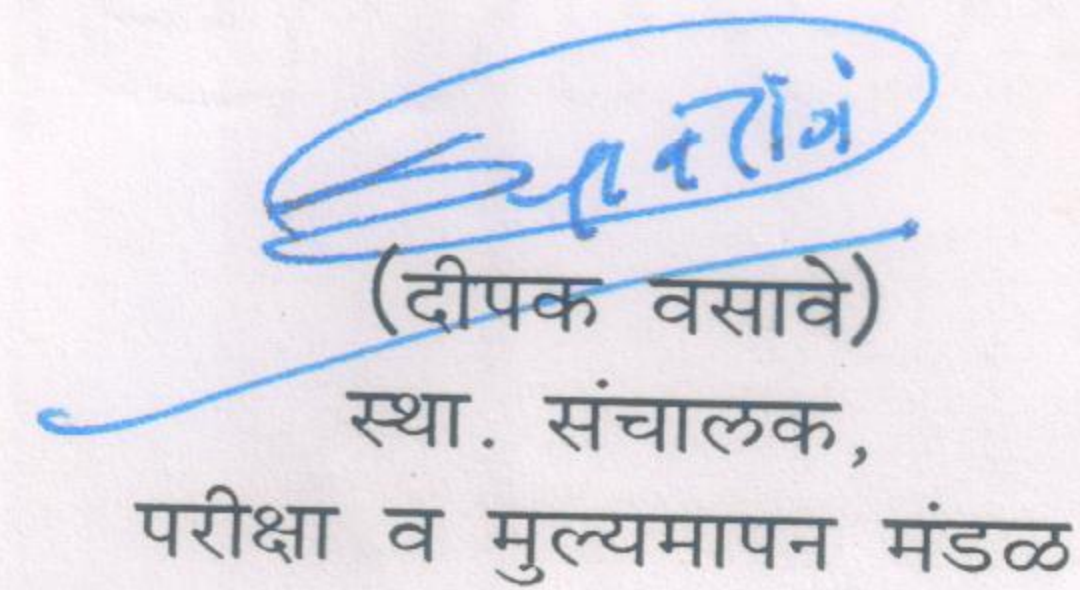 (दीपक वसावे)
स्था. संचालक,
परीक्षा व मुल्यमापन मंडळ